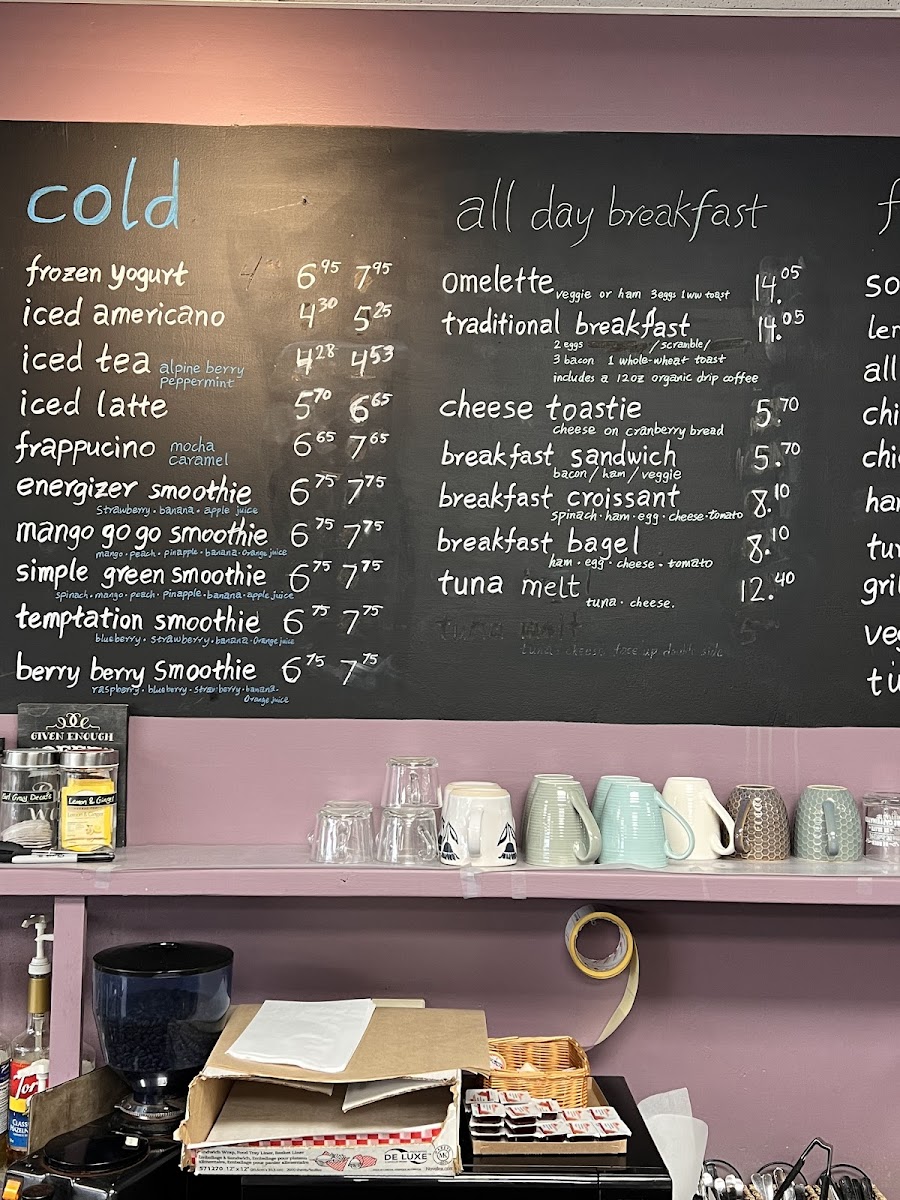 cold
frozen yogurt 6.95 7.95
iced americano 4.30 5.25
iced tea alpine berry 4.28 4.53
peppermint
iced latte 5.70 6.65
frappucino mocha 6.65 7.65
caramel
energizer smoothie 6.75 7.75
strawberry · banana · apple juice
mango go go smoothie 6.75 7.75
mango · peach · pinapple · banana · orange juice
simple green smoothie 6.75 7.75
spinach · mango · peach · pinapple · banana · apple juice
temptation smoothie 6.75 7.75
blueberry · strawberry · banana · orange juice
berry berry smoothie 6.75 7.75
raspberry · blueberry · strawberry · banana ·
orange juice
all day breakfast
omelette veggie or ham 3 eggs 1 ww toast 14.05
traditional breakfast 14.05
2 eggs / scramble /
3 bacon 1 whole-wheat toast
includes a 12oz organic drip coffee
cheese toastie 5.70
cheese on cranberry bread
breakfast sandwich 5.70
bacon / ham / veggie
breakfast croissant 8.10
spinach · ham · egg · cheese · tomato
breakfast bagel 8.10
ham · egg · cheese · tomato
tuna melt 12.40
tuna · cheese.
tuna melt 5
tuna · cheese face up double side
f
so
le
all
chi
chi
ha
tu
gri
ve
GIVEN ENOUGH
Earl Gray Decafe
Lemon & Ginger
Tor
CLASSIC
HAZELN
Sandwich Wrap, Food Tray Liner, Basket Liner
571270 12"x12"
DE LUXE